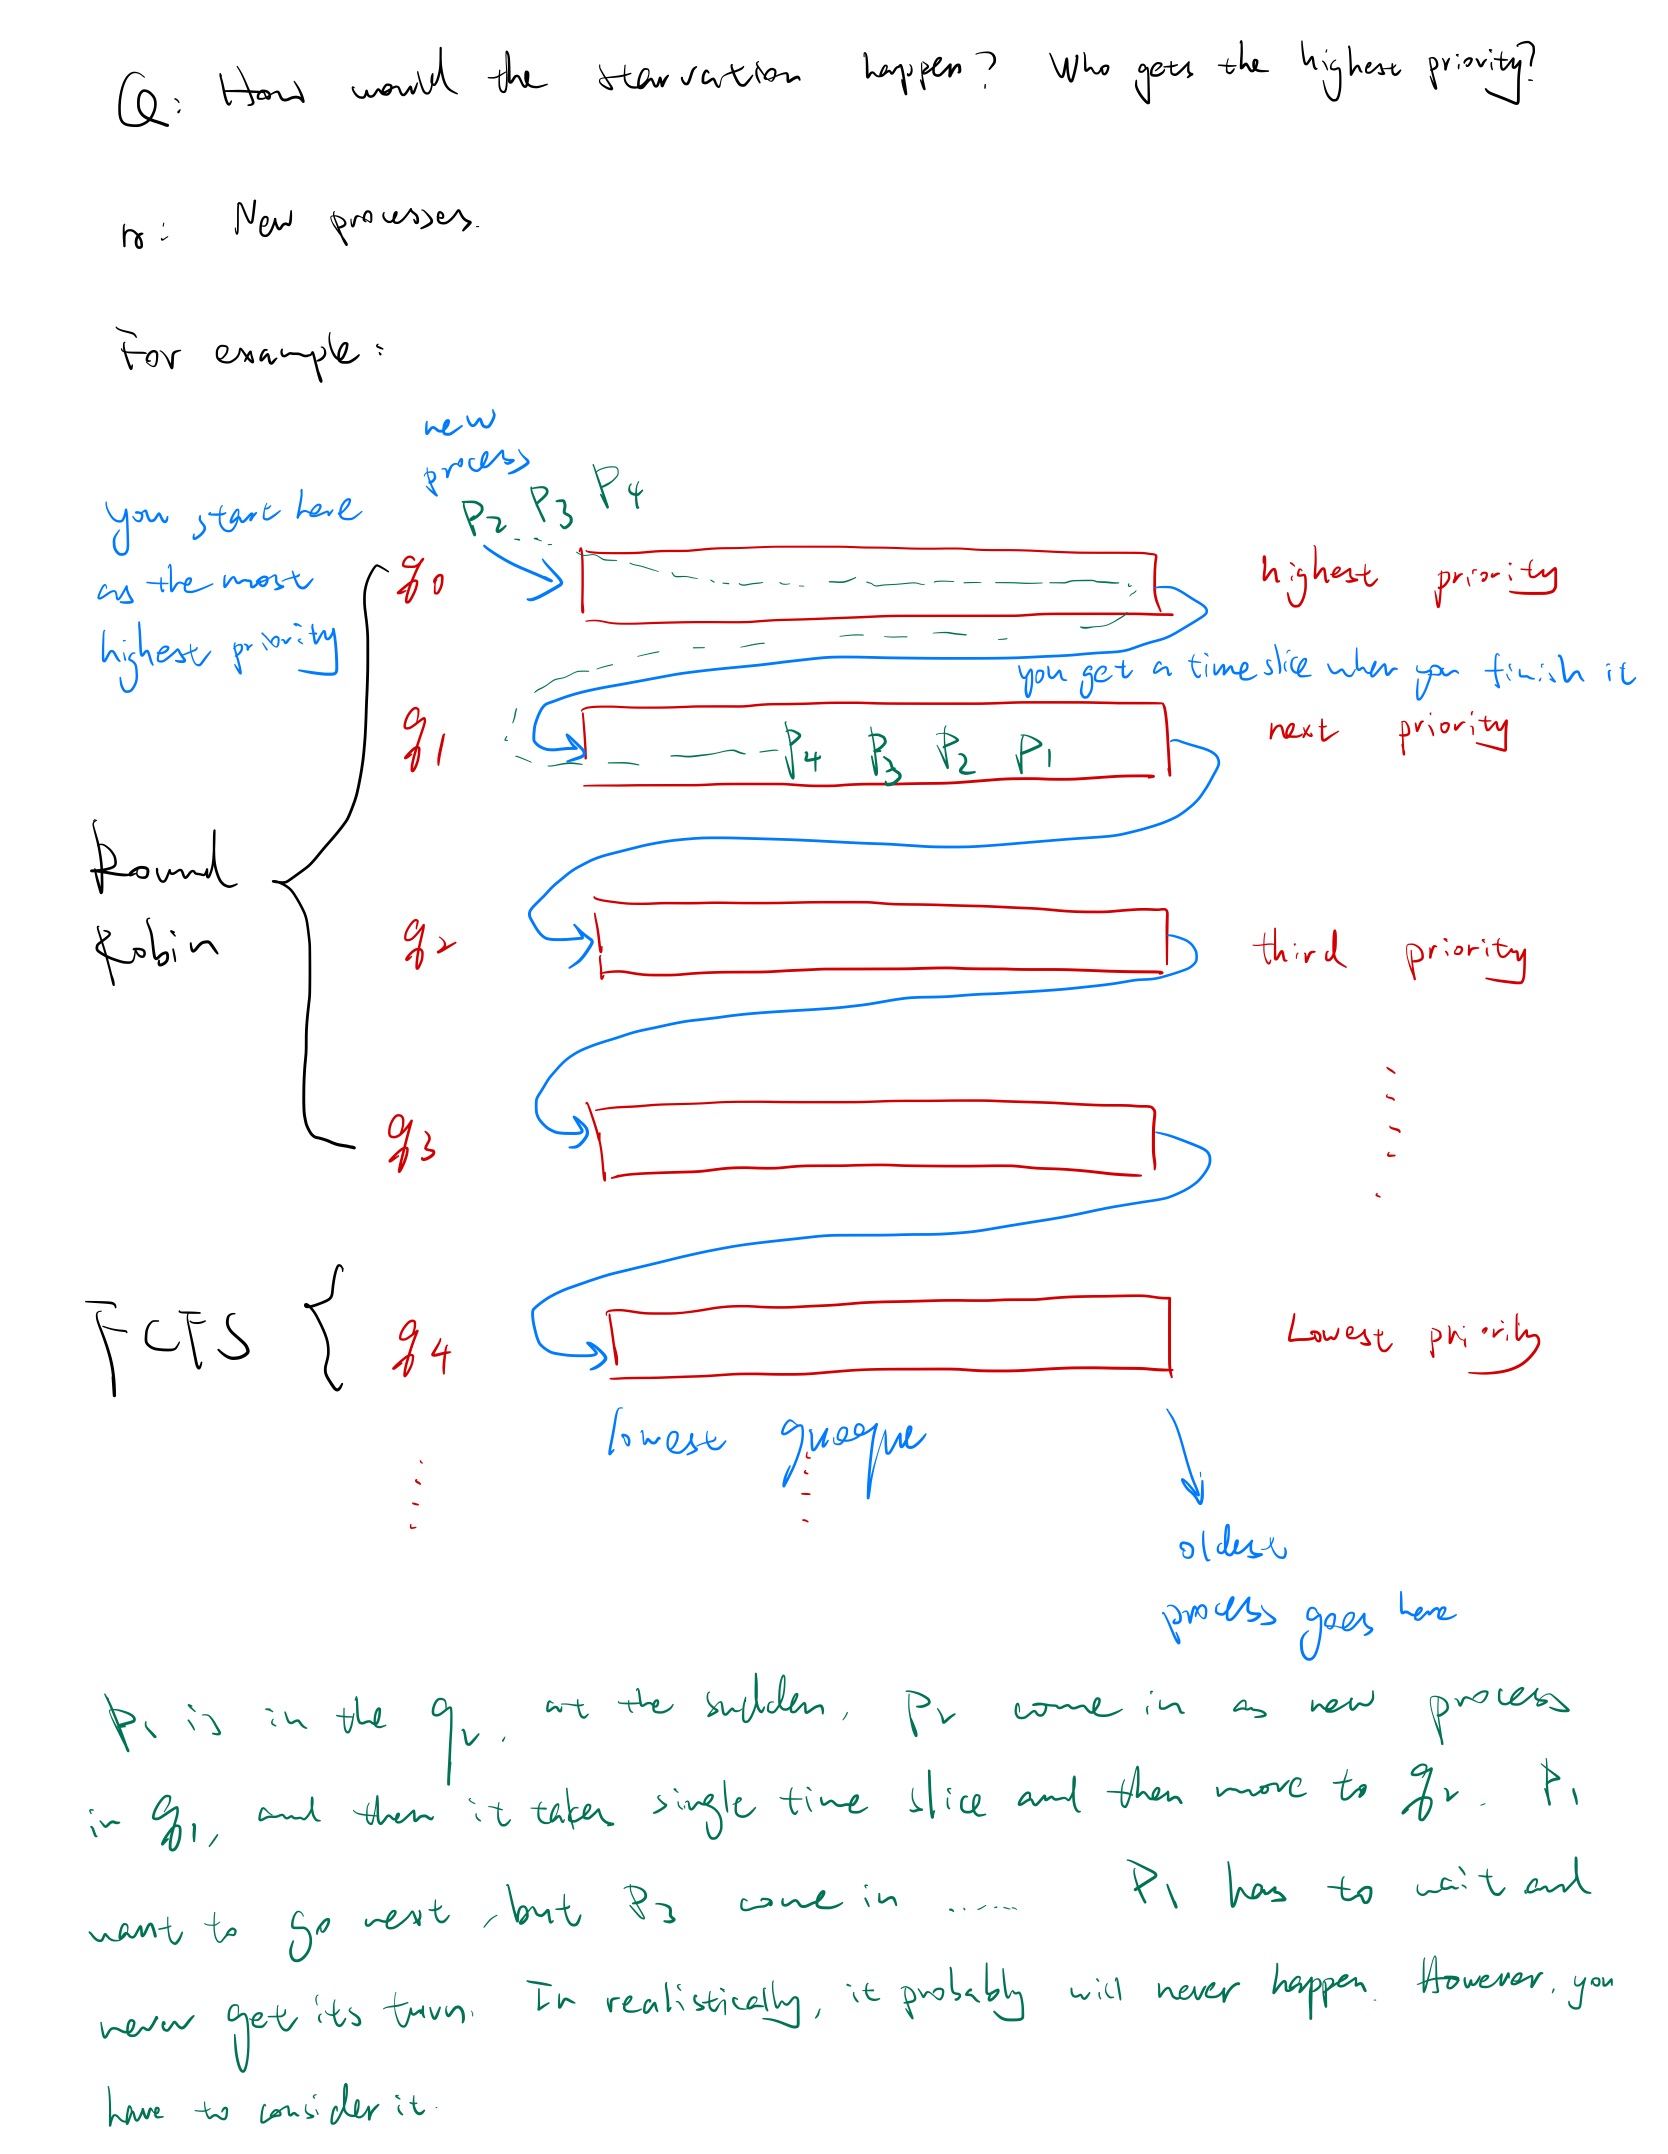 Q: How would the starvation happen? Who gets the highest priority?
New processes.
For example:
new
process
P2 P3 P4
you start here
as the most
highest priority
q0
highest priority
you get a time slice when you finish it
q1
P4 P3 P2 P1
next priority
Round
Robin
q2
third priority
q3
FCFS
q4
Lowest priority
lowest
oldest
process goes here
P1 is in the q2, at the sudden, P2 come in as new process
in q1, and then it takes single time slice and then move to q2. P1
want to go next, but P3 come in ...... P1 has to wait and
never get its turn. In realistically, it probably will never happen. However, you
have to consider it.